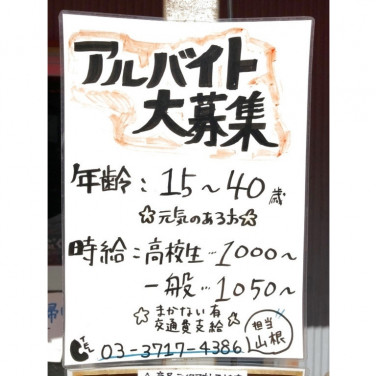 アルバイト
大募集
年齢：15～40歳
☆元気のある方☆
時給：高校生…1000～
一般…1050～
☆まかない有
交通費支給☆
TEL 03-3717-4386 担当 山根